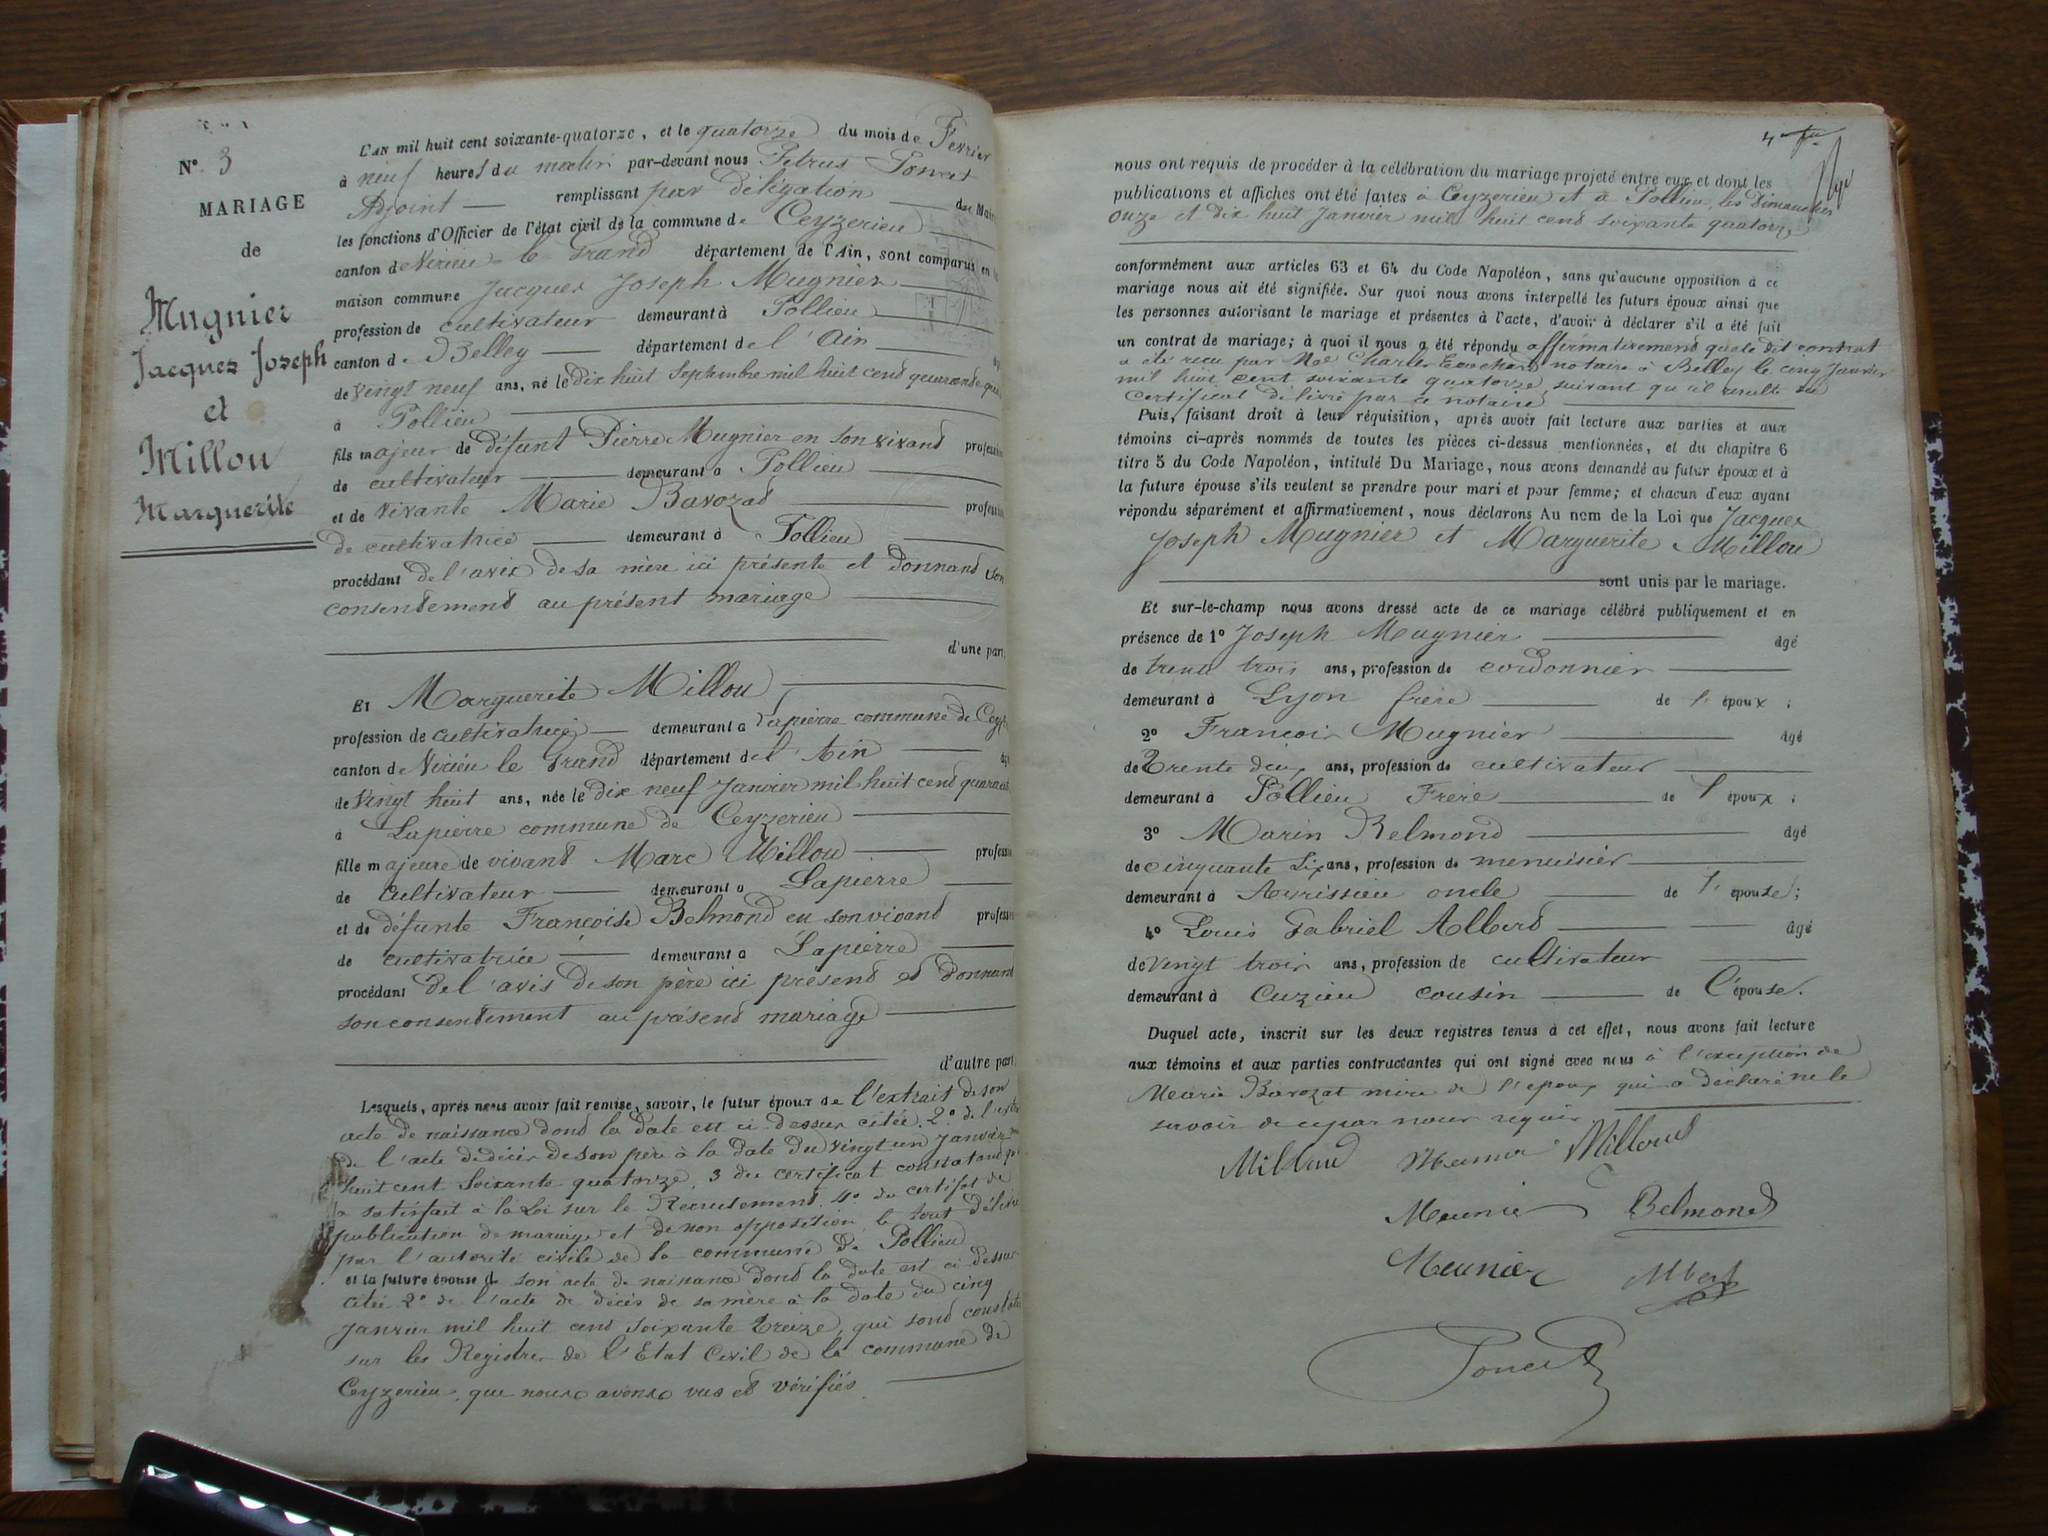 N.° 3
MARIAGE
de
Mugnier
Jacques Joseph
et
Millou
Marguerite
L'AN mil huit cent soixante-quatorze, et le quatorze du mois de Fevrier
à neuf heures du matin par-devant nous Petrus
Adjoint remplissant par délégation du Maire
les fonctions d'Officier de l'état civil de la commune de Ceyzerieu
canton de Virieu-le Grand département de l'Ain, sont comparus en
maison commune Jacques Joseph Mugnier
profession de cultivateur demeurant à Pollieu
canton de Belley département de l'Ain
de Vingt neuf ans, né le dix huit Septembre mil huit cend quarande
à Pollieu
fils majeur de défunt Pierre Mugnier en son vivand profession
de cultivateur demeurant à Pollieu
et de vivante Marie Bavozad profession
de cultivatrice demeurant à Pollieu
procédant de l'avix de sa mère ici présente et donnand son
consendemend au présent mariage
d'une part,
ET Marguerite Millou
profession de cultivatrice demeurant à Lapierre commune de
canton de Virieu le Grand département de l'Ain
de Vingt huit ans, née le dix neuf Janvier mil huit cend
à Lapierre commune de Ceyzerieu
fille majeure de vivand Marc Millou profession
de cultivateur demeurant à Lapierre
et de défunte Françoise Belmond en son vivand profession
de cultivatrice demeurant à Lapierre
procédant de l'avis de son père ici présend et donnant
son consendement au présend mariage
d'autre part,
Lesquels, après nous avoir fait remise, savoir, le futur époux de l'extrait de son
acte de naissance dond la date est ci-dessus citée. 2° de
de l'acte de décès de son père à la date du vingt un Janvier
huit cent soixante quatorze, 3 du certificat constatand
a satisfait à la Loi sur le Recrutement. 4° du certifat de
publication de mariage et de non opposition, le tout délivré
par l'autorité civile de la commune de Pollieu
et la future épouse de son acte de naissance dond la date est ci dessus
citée 2° de l'acte de décès de sa mère à la date du cinq
Janvier mil huit cend soixante treize, qui sond
sur les Registres de l'Etat Civil de la commune de
Ceyzerieu, que nous avons vus et vérifiés
nous ont requis de procéder à la célébration du mariage projeté entre eux et dont les
publications et affiches ont été faites à Ceyzerieu et à Pollieu, les Dimanches
onze et dix huit Janvier mil huit cend soixante quatorze
conformément aux articles 63 et 64 du Code Napoléon, sans qu'aucune opposition à ce
mariage nous ait été signifiée. Sur quoi nous avons interpellé les futurs époux ainsi que
les personnes autorisant le mariage et présentes à l'acte, d'avoir à déclarer s'il a été fait
un contrat de mariage; à quoi il nous a été répondu affirmativemend que le dit contrat
a été reçu par Charles notaire à Belley le cinq Janvier
mil huit cent soixante quatorze, suivant qu'il résulte du
certificat délivré par ce notaire
Puis, faisant droit à leur réquisition, après avoir fait lecture aux parties et aux
témoins ci-après nommés de toutes les pièces ci-dessus mentionnées, et du chapitre 6
titre 5 du Code Napoléon, intitulé Du Mariage, nous avons demandé au futur époux et à
la future épouse s'ils veulent se prendre pour mari et pour femme; et chacun d'eux ayant
répondu séparément et affirmativement, nous déclarons Au nom de la Loi que Jacques
Joseph Mugnier et Marguerite Millou
sont unis par le mariage.
Et sur-le-champ nous avons dressé acte de ce mariage célébré publiquement et en
présence de 1° Joseph Mugnier âgé
de trente trois ans, profession de cordonnier
demeurant à Lyon frère de l'époux;
2° François Mugnier âgé
de Trente deux ans, profession de cultivateur
demeurant à Pollieu Frère de l'époux;
3° Marin Belmond âgé
de cinquante six ans, profession de menuisier
demeurant à Avrissieu oncle de l'épouse;
4° Louis Gabriel Albert âgé
de Vingt trois ans, profession de cultivateur
demeurant à Cuzieu cousin de l'épouse.
Duquel acte, inscrit sur les deux registres tenus à cet effet, nous avons fait lecture
aux témoins et aux parties contractantes qui ont signé avec nous à l'exception de
Marie Bavozat mère de l'époux qui a déclaré ne le
savoir de ce par nous requis
Millou Meunier Milloud
Meunier Belmond
Meunier Albert